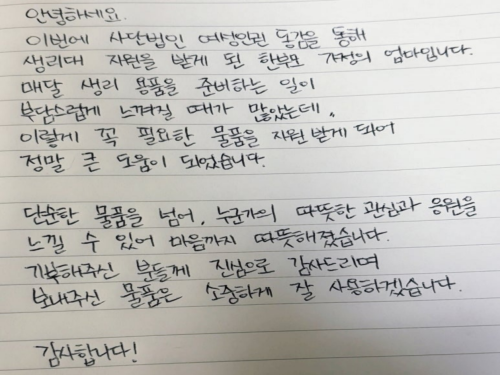 안녕하세요.
이번에 사단법인 여성인권 동감을 통해
생리대 지원을 받게 된 한부모 가정의 엄마입니다.
매달 생리 용품을 준비하는 일이
부담스럽게 느껴질 때가 많았는데,
이렇게 꼭 필요한 물품을 지원 받게 되어
정말 큰 도움이 되었습니다.
단순한 물품을 넘어, 누군가의 따뜻한 관심과 응원을
느낄 수 있어 마음까지 따뜻해졌습니다.
기부해주신 분들께 진심으로 감사드리며
보내주신 물품은 소중하게 잘 사용하겠습니다.
감사합니다!